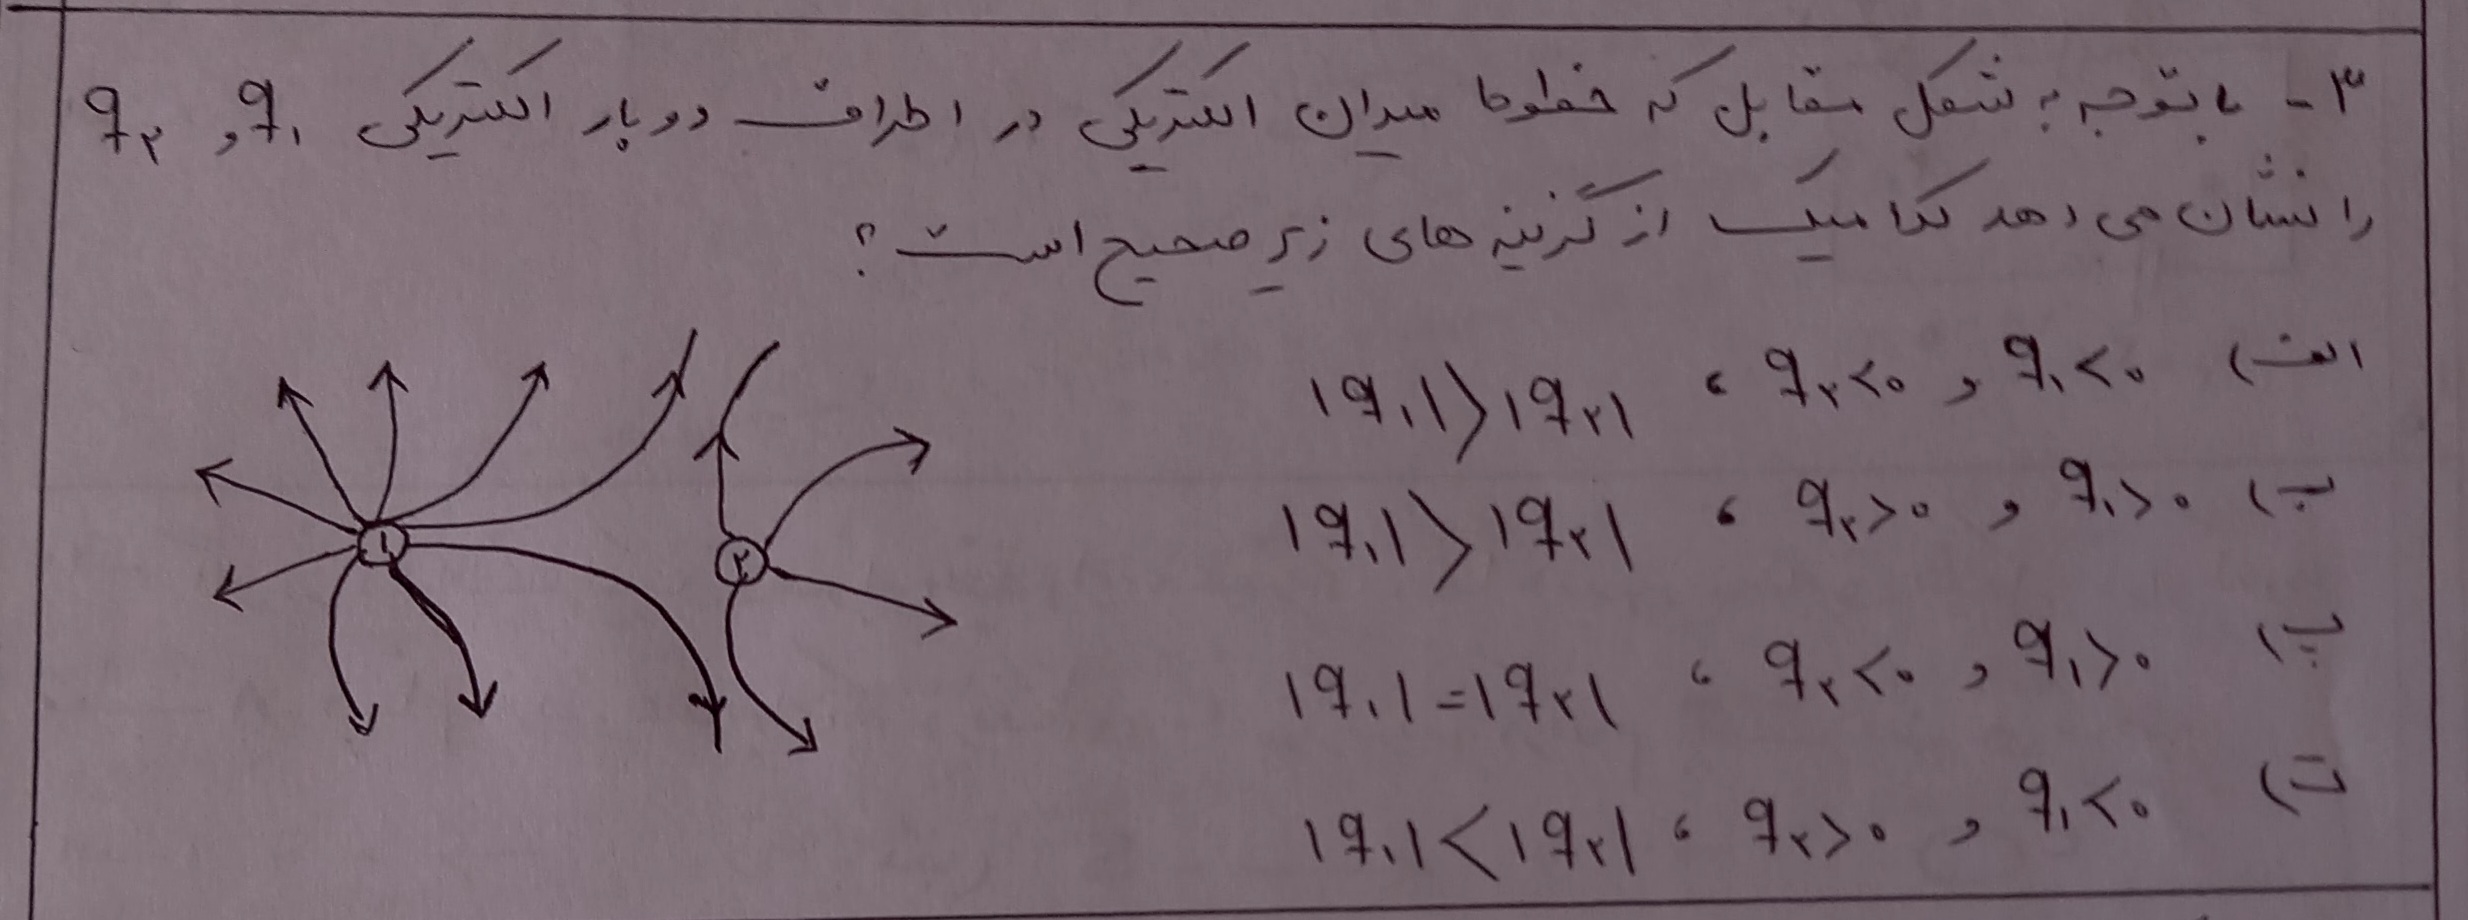 ۳ - با توجه به شکل مقابل که خطوط میدان الکتریکی در اطراف دو بار الکتریکی q۱ و q۲
را نشان می دهد کدامیک از گزینه های زیر صحیح است؟
الف) q۱<۰ و q۲<۰ ، |q۱|>|q۲|
ب) q۱>۰ و q۲>۰ ، |q۱|>|q۲|
پ) q۱>۰ و q۲<۰ ، |q۱|=|q۲|
ت) q۱<۰ و q۲>۰ ، |q۱|<|q۲|
۱
۲